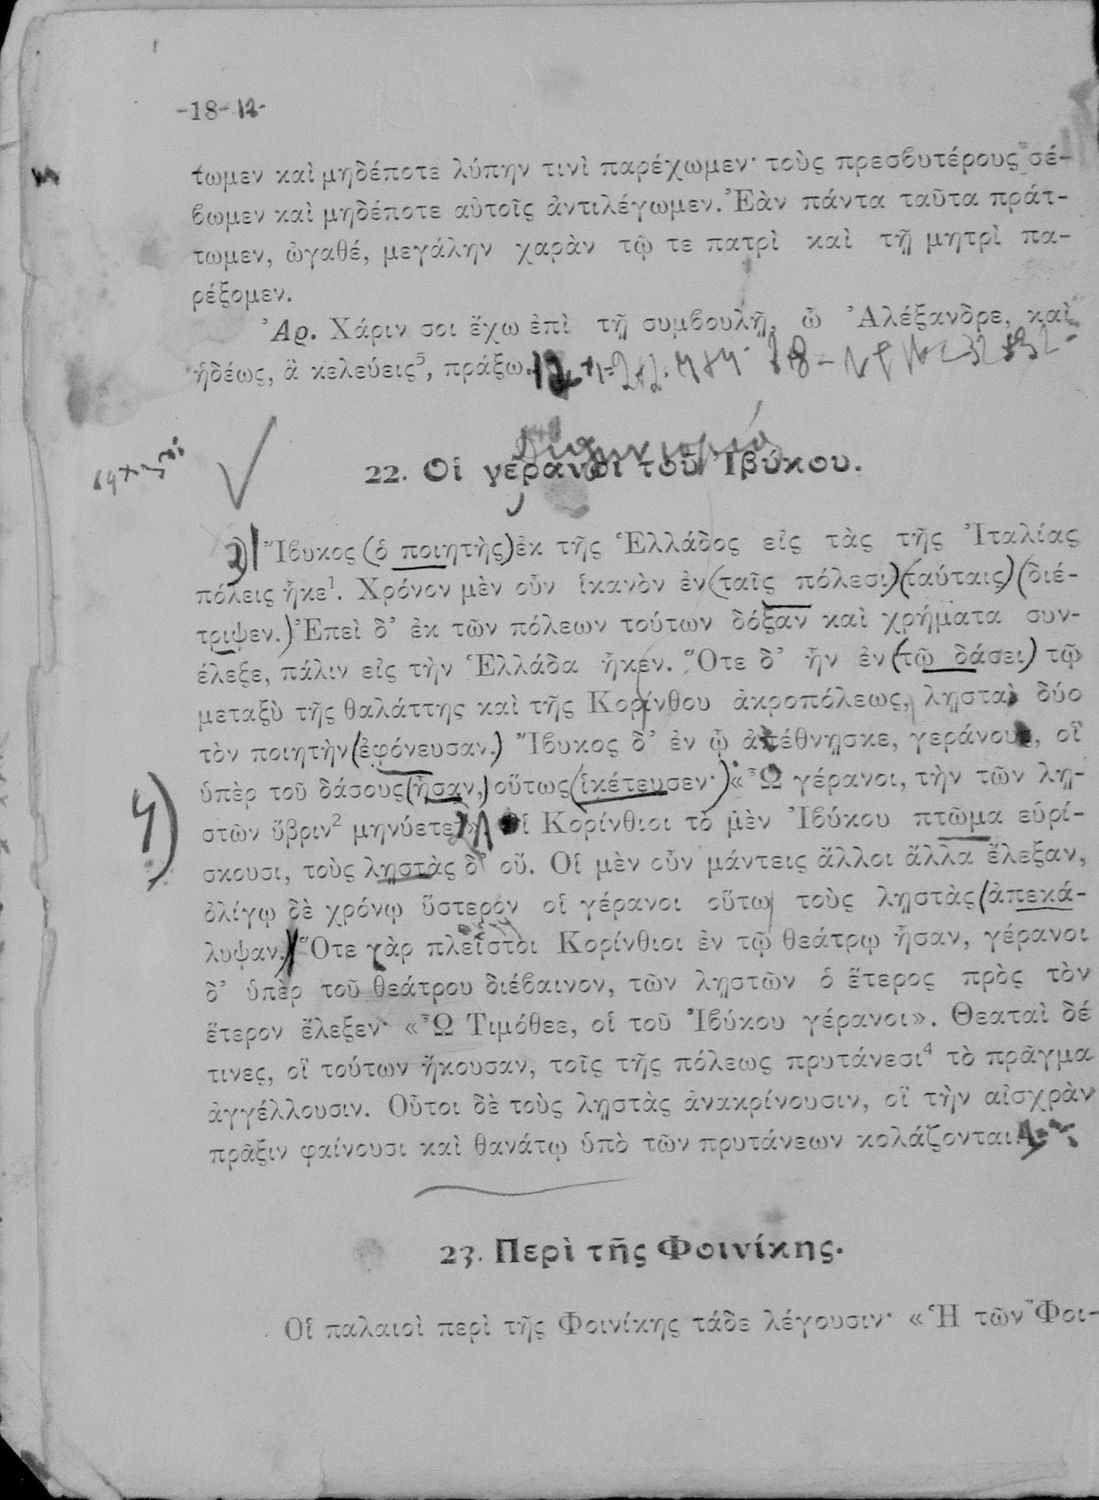 -18- 12-
τωμεν καὶ μηδέποτε λύπην τινὶ παρέχωμεν· τοὺς πρεσβυτέρους σέ-
βωμεν καὶ μηδέποτε αὐτοῖς ἀντιλέγωμεν. Ἐὰν πάντα ταῦτα πράτ-
τωμεν, ὠγαθέ, μεγάλην χαρὰν τῷ τε πατρὶ καὶ τῇ μητρὶ πα-
ρέξομεν.
Ἀρ. Χάριν σοι ἔχω ἐπὶ τῇ συμβουλῇ, ὦ Ἀλέξανδρε, καὶ
ἡδέως, ἃ κελεύεις⁵, πράξω.
22. Οἱ γέρανοι τοῦ Ἰβύκου.
2) Ἴβυκος (ὁ ποιητὴς) ἐκ τῆς Ἑλλάδος εἰς τὰς τῆς Ἰταλίας
πόλεις ἧκε¹. Χρόνον μὲν οὖν ἱκανὸν ἐν (ταῖς πόλεσι) (ταύταις) (διέ-
τριψεν.) Ἐπεὶ δ' ἐκ τῶν πόλεων τούτων δόξαν καὶ χρήματα συν-
έλεξε, πάλιν εἰς τὴν Ἑλλάδα ἧκεν. Ὅτε δ' ἦν ἐν (τῷ δάσει) τῷ
μεταξὺ τῆς θαλάττης καὶ τῆς Κορίνθου ἀκροπόλεως, λῃσταὶ δύο
τὸν ποιητὴν (ἐφόνευσαν.) Ἴβυκος δ' ἐν ᾧ ἀπέθνησκε, γεράνους, οἳ
ὑπὲρ τοῦ δάσους (ἦσαν,) οὕτως (ἱκέτευσεν·) «Ὦ γέρανοι, τὴν τῶν λῃ-
4) στῶν ὕβριν² μηνύετε». Οἱ Κορίνθιοι τὸ μὲν Ἰβύκου πτῶμα εὑρί-
σκουσι, τοὺς λῃστὰς δ' οὔ. Οἱ μὲν οὖν μάντεις ἄλλοι ἄλλα ἔλεξαν,
ὀλίγῳ δὲ χρόνῳ ὕστερον οἱ γέρανοι οὕτω τοὺς λῃστὰς (ἀπεκά-
λυψαν.) Ὅτε γὰρ πλεῖστοι Κορίνθιοι ἐν τῷ θεάτρῳ ἦσαν, γέρανοι
δ' ὑπὲρ τοῦ θεάτρου διέβαινον, τῶν λῃστῶν ὁ ἕτερος πρὸς τὸν
ἕτερον ἔλεξεν· «Ὦ Τιμόθεε, οἱ τοῦ Ἰβύκου γέρανοι». Θεαταὶ δέ
τινες, οἳ τούτων ἤκουσαν, τοῖς τῆς πόλεως πρυτάνεσι⁴ τὸ πρᾶγμα
ἀγγέλλουσιν. Οὗτοι δὲ τοὺς λῃστὰς ἀνακρίνουσιν, οἳ τὴν αἰσχρὰν
πρᾶξιν φαίνουσι καὶ θανάτῳ ὑπὸ τῶν πρυτάνεων κολάζονται.
23. Περὶ τῆς Φοινίκης.
Οἱ παλαιοὶ περὶ τῆς Φοινίκης τάδε λέγουσιν· «Ἡ τῶν Φοι-